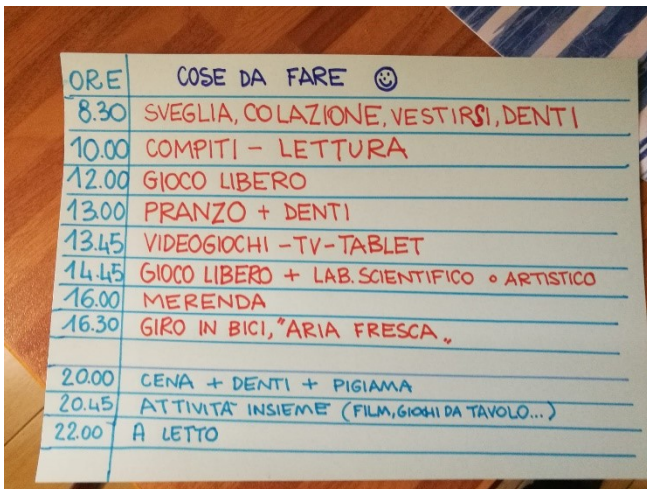 ORE COSE DA FARE ☺
8.30 SVEGLIA, COLAZIONE, VESTIRSI, DENTI
10.00 COMPITI - LETTURA
12.00 GIOCO LIBERO
13.00 PRANZO + DENTI
13.45 VIDEOGIOCHI - TV - TABLET
14.45 GIOCO LIBERO + LAB. SCIENTIFICO O ARTISTICO
16.00 MERENDA
16.30 GIRO IN BICI, "ARIA FRESCA"
20.00 CENA + DENTI + PIGIAMA
20.45 ATTIVITÀ INSIEME (FILM, GIOCHI DA TAVOLO...)
22.00 A LETTO